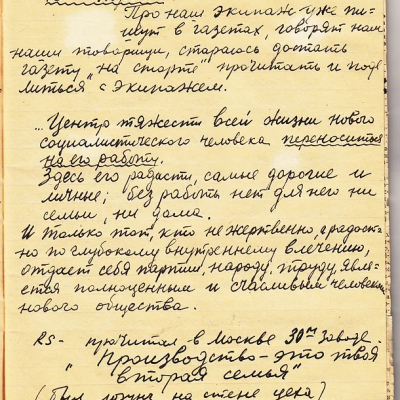 Про наш экипаж уже пи-
шут в газетах, говорят нам
наши товарищи, стараюсь достать
газету „на старте" прочитать и поде
литься с экипажем.
... Центр тяжести всей жизни нового
социалистического человека переносится
на его работу.
Здесь его радости, самые дорогие и
личные; без работы нет для него ни
семьи, ни дома.
И только тот, кто не жертвенно, а радост-
но по глубокому внутреннему влечению,
отдаёт себя партии, народу, труду, явля-
ется полноценным и счастливым человеком
нового общества.
PS- прочитал в Москве 30ом Заводе.
„Производство - это твоя
вторая семья"
(был лозунг на стене цеха)